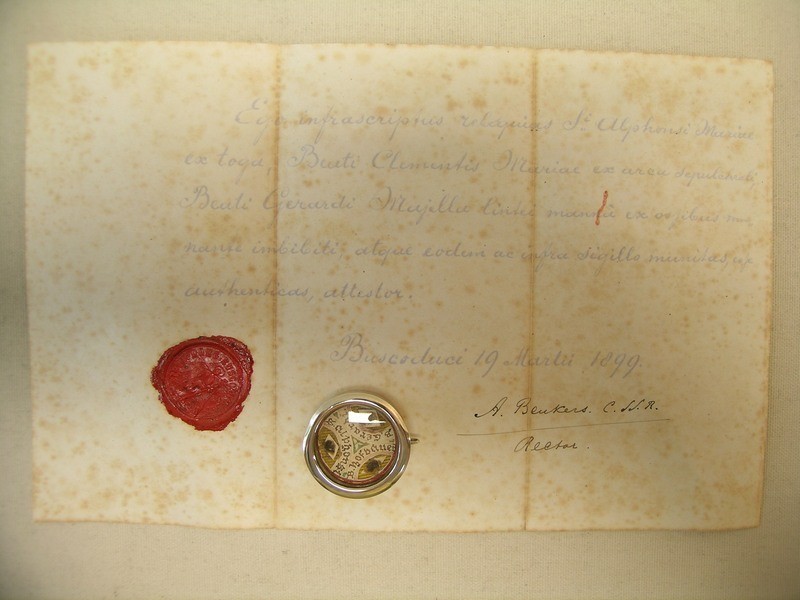 Ego infrascriptus reliquias Sti Alphonsi Mariae
ex toga, Beati Clementis Mariae ex arca sepulchrali
Beati Gerardi Majella lintei ex ossibus ma-
nante imbibiti, atque eodem ac infra sigillo munitas, ut
authenticas, attestor.
Buscoduci 19 Martii 1899.
A. Beukers. C.SS.R.
Rector.
B. Hofbauer